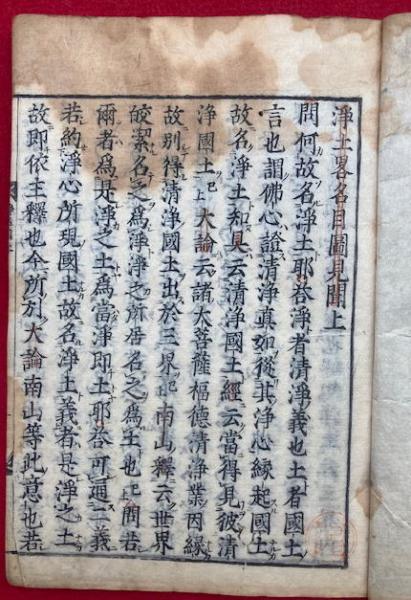 淨土畧名目圖見聞上
問何故名淨土耶荅淨者清淨義也土者國土
言也謂佛心證清淨眞如從此淨心緣起國土
故名淨土和具云清淨國土經云當得見彼清
浄國土已上大論云諸大菩薩福德清淨業因緣
故別得清淨國土出於三界已上南山釋云世界
皎潔名之爲淨淨之所居名之爲土也已上問若
爾者爲是淨之土爲當淨即土耶荅可通二義
若約淨心所現國土故名淨土義者是淨之土
故即依主釋也今所列大論南山等此意也若